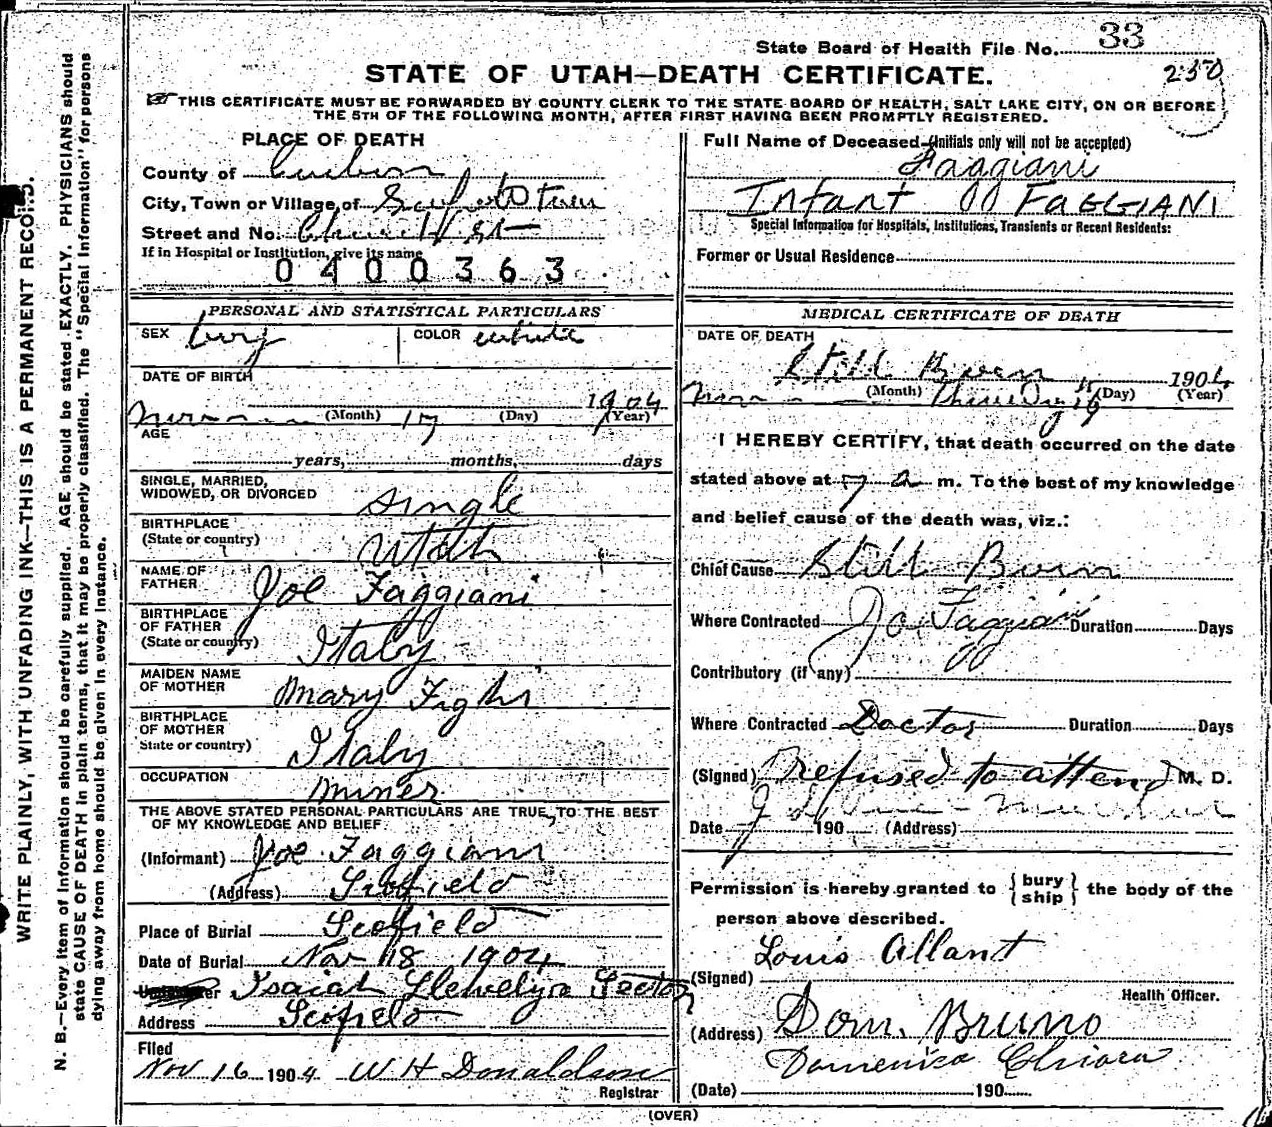 State Board of Health File No. 33
STATE OF UTAH—DEATH CERTIFICATE.
250
THIS CERTIFICATE MUST BE FORWARDED BY COUNTY CLERK TO THE STATE BOARD OF HEALTH, SALT LAKE CITY, ON OR BEFORE
THE 5TH OF THE FOLLOWING MONTH, AFTER FIRST HAVING BEEN PROMPTLY REGISTERED.
WRITE PLAINLY, WITH UNFADING INK—THIS IS A PERMANENT RECORD.
N. B.—Every item of information should be carefully supplied. AGE should be stated EXACTLY. PHYSICIANS should
state CAUSE OF DEATH in plain terms, that it may be properly classified. The "Special Information" for persons
dying away from home should be given in every instance.
PLACE OF DEATH
County of
City, Town or Village, of
Street and No.
If in Hospital or Institution, give its name
0400363
PERSONAL AND STATISTICAL PARTICULARS
SEX boy COLOR white
DATE OF BIRTH
1904
(Month) 17 (Day) (Year)
AGE
years, months, days
SINGLE, MARRIED,
WIDOWED, OR DIVORCED single
BIRTHPLACE
(State or country) Utah
NAME OF
FATHER Joe Faggiani
BIRTHPLACE
OF FATHER
(State or country) Italy
MAIDEN NAME
OF MOTHER Mary
BIRTHPLACE
OF MOTHER
State or country) Italy
OCCUPATION miner
THE ABOVE STATED PERSONAL PARTICULARS ARE TRUE, TO THE BEST
OF MY KNOWLEDGE AND BELIEF
(Informant) Joe Faggiani
(Address) Scofield
Place of Burial Scofield
Date of Burial Nov 18 1904
Isaiah Llewelyn Sector
Address Scofield
Filed
Nov 16 1904 W H Donaldson
Registrar
Full Name of Deceased (Initials only will not be accepted)
Faggiani
Infant FAGGIANI
Special Information for Hospitals, Institutions, Transients or Recent Residents:
Former or Usual Residence
MEDICAL CERTIFICATE OF DEATH
DATE OF DEATH
Still Born 1904
(Month) (Day) (Year)
I HEREBY CERTIFY, that death occurred on the date
stated above at 7 a m. To the best of my knowledge
and belief cause of the death was, viz.:
Chief Cause Still Born
Where Contracted Jo Faggiani Duration Days
Contributory (if any)
Where Contracted Doctor Duration Days
(Signed) refused to attend M. D.
Date 190 (Address)
Permission is hereby granted to {bury ship} the body of the
person above described.
Louis Allant
(Signed)
Health Officer.
(Address) Dom. Bruno
Domenico Chiara
(Date) 190
(OVER)